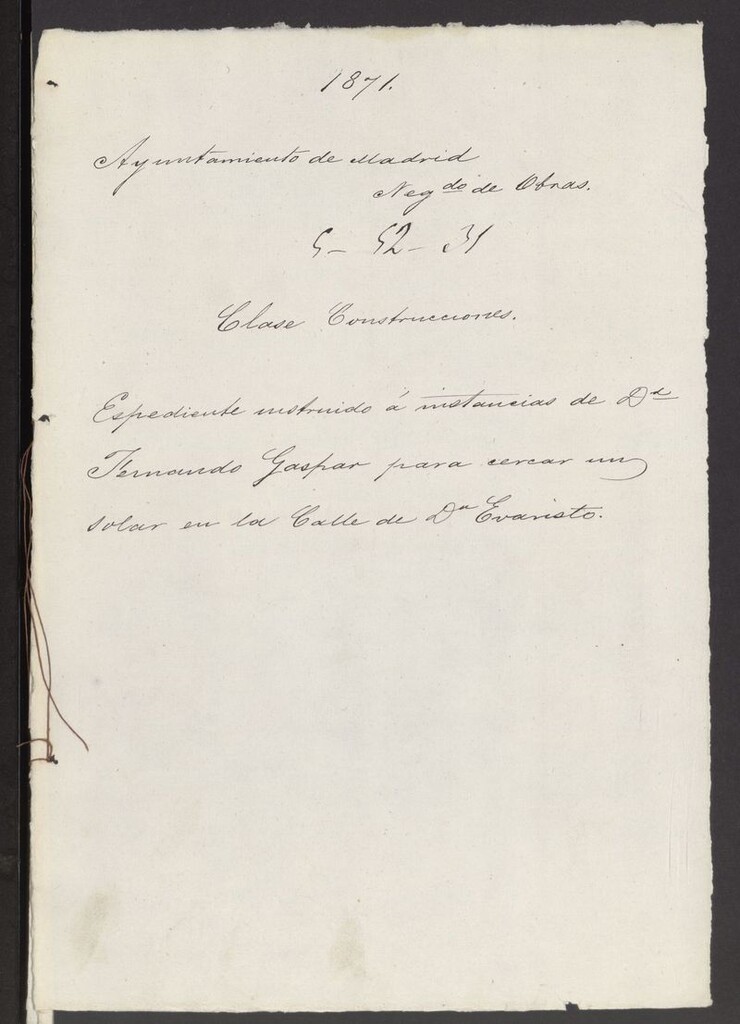 1871.
Ayuntamiento de Madrid
Neg.do de Obras.
5-52-31
Clase Construcciones.
Espediente instruido á instancias de Dn
Fernando Gaspar para cercar un
solar en la Calle de Dn Evaristo.